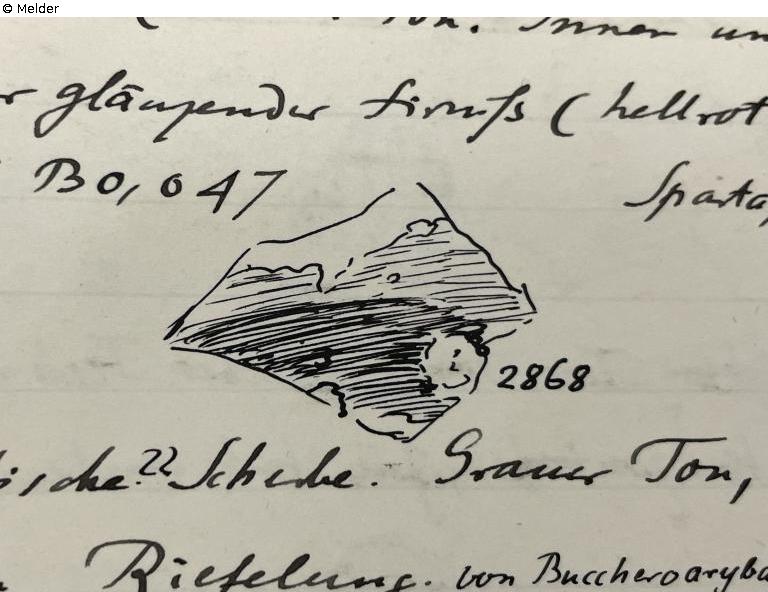 © Melder
Ton. Innen un
r glänzender Firniss (hellrot
B 0,047 Sparta,
2868
ische?? Scherbe. Grauer Ton,
Riefelung. von Buccheroaryba